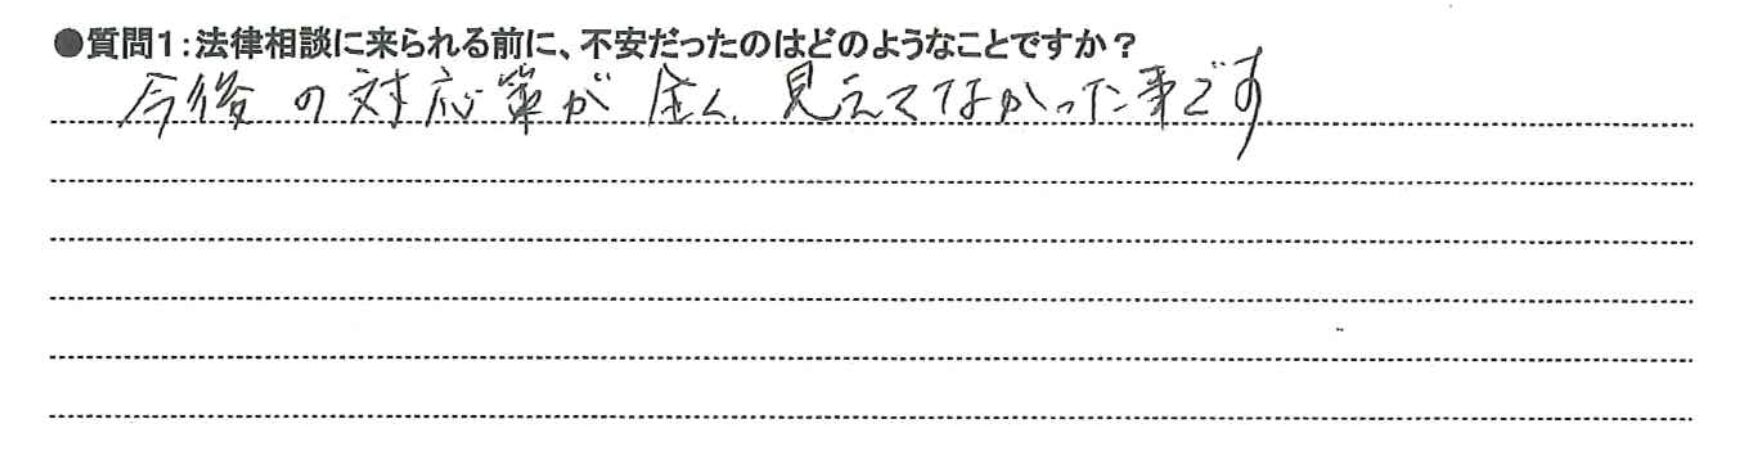 ●質問1:法律相談に来られる前に、不安だったのはどのようなことですか？
今後の対応策が全く見えてなかった事です